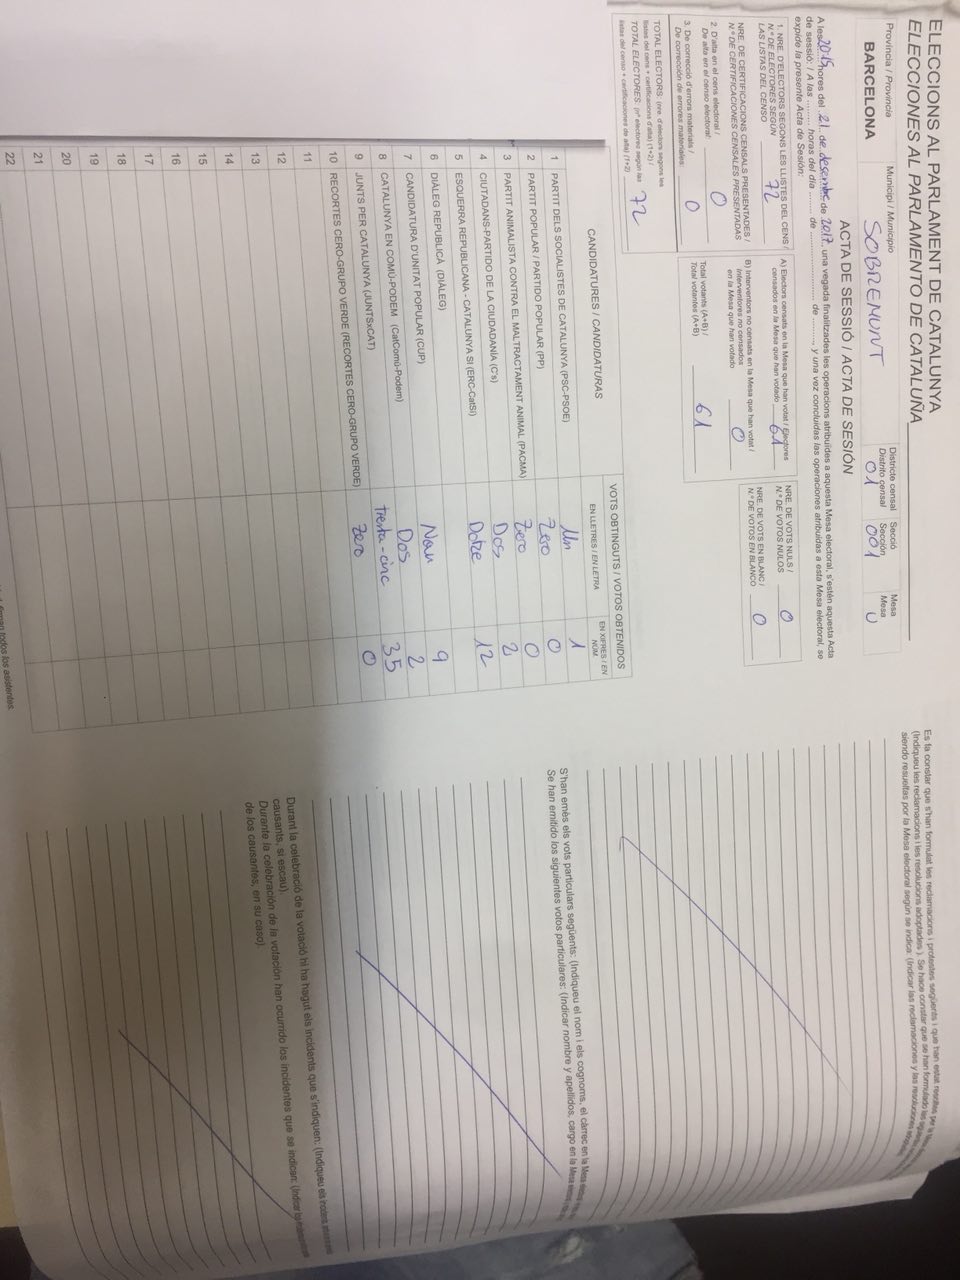 ELECCIONS AL PARLAMENT DE CATALUNYA
ELECCIONES AL PARLAMENTO DE CATALUÑA
Província / Provincia
BARCELONA
Municipi / Municipio
SOBREMUNT
Districte censal
Distrito censal
01
Secció
Sección
001
Mesa
Mesa
U
ACTA DE SESSIÓ / ACTA DE SESIÓN
A les 20:15 hores del 21 de desembre de 2017, una vegada finalitzades les operacions atribuïdes a aquesta Mesa electoral, s'estén aquesta Acta
de sessió: / A las ......... horas del día ......... de ......................... de ........., y una vez concluidas las operaciones atribuidas a esta Mesa electoral, se
expide la presente Acta de Sesión:
1. NRE. D'ELECTORS SEGONS LES LLISTES DEL CENS /
N.º DE ELECTORES SEGÚN
LAS LISTAS DEL CENSO 72
NRE. DE CERTIFICACIONS CENSALS PRESENTADES /
N.º DE CERTIFICACIONES CENSALES PRESENTADAS
2. D'alta en el cens electoral /
De alta en el censo electoral: 0
3. De correcció d'errors materials /
De corrección de errores materiales: 0
TOTAL ELECTORS: (nre. d'electors segons les
llistes del cens + certificacions d'alta) (1+2) /
TOTAL ELECTORES: (nº electores según las
listas del censo + certificaciones de alta) (1+2) 72
A) Electors censats en la Mesa que han votat / Electores
censados en la Mesa que han votado 61
B) Interventors no censats en la Mesa que han votat /
Interventores no censados
en la Mesa que han votado 0
Total votants (A+B) /
Total votantes (A+B) 61
NRE. DE VOTS NULS /
N.º DE VOTOS NULOS 0
NRE. DE VOTS EN BLANC /
N.º DE VOTOS EN BLANCO 0
CANDIDATURES / CANDIDATURAS
VOTS OBTINGUTS / VOTOS OBTENIDOS
EN LLETRES / EN LETRA
EN XIFRES / EN NÚM.
1 PARTIT DELS SOCIALISTES DE CATALUNYA (PSC-PSOE) Un 1
2 PARTIT POPULAR / PARTIDO POPULAR (PP) Zero 0
3 PARTIT ANIMALISTA CONTRA EL MALTRACTAMENT ANIMAL (PACMA) Zero 0
4 CIUTADANS-PARTIDO DE LA CIUDADANÍA (C's) Dos 2
5 ESQUERRA REPUBLICANA - CATALUNYA SÍ (ERC-CatSí) Dotze 12
6 DIÀLEG REPUBLICÀ (DIÀLEG)
7 CANDIDATURA D'UNITAT POPULAR (CUP) Nou 9
8 CATALUNYA EN COMÚ-PODEM (CatComú-Podem) Dos 2
9 JUNTS PER CATALUNYA (JUNTSxCAT) trenta-cinc 35
10 RECORTES CERO-GRUPO VERDE (RECORTES CERO-GRUPO VERDE) Zero 0
11
12
13
14
15
16
17
18
19
20
21
22
firman todos los asistentes.
Es fa constar que s'han formulat les reclamacions i protestes següents i que han estat resoltes per la
(Indiqueu les reclamacions i les resolucions adoptades). Se hace constar que se han formulado las
siendo resueltas por la Mesa electoral según se indica: (Indicar las reclamaciones y las resoluciones
S'han emès els vots particulars següents: (Indiqueu el nom i els cognoms, el càrrec en la Mesa
Se han emitido los siguientes votos particulares: (Indicar nombre y apellidos, cargo en la Mesa
Durant la celebració de la votació hi ha hagut els incidents que s'indiquen: (Indiqueu els
causants, si escau).
Durante la celebración de la votación han ocurrido los incidentes que se indican: (Indicar
de los causantes, en su caso).